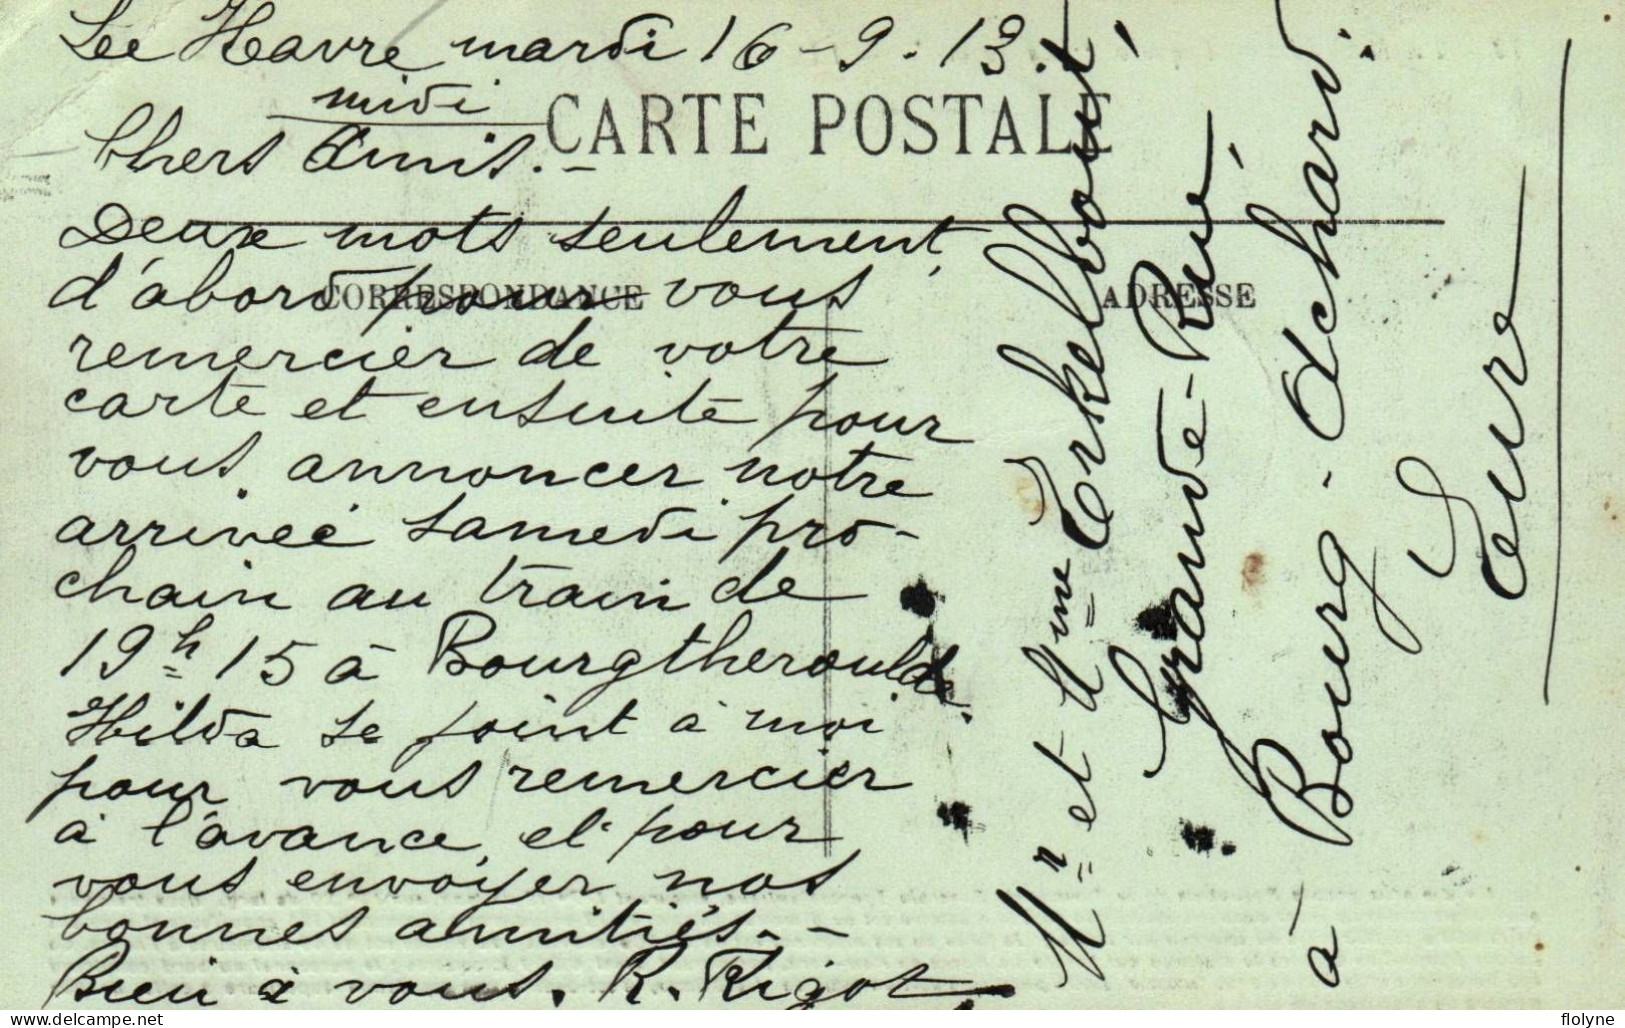 Le Havre mardi 16-9-13.
midi
CARTE POSTALE
Chers Amis.-
Deux mots seulement,
d'abord pour vous
CORRESPONDANCE
ADRESSE
remercier de votre
carte et ensuite pour
vous annoncer notre
arrivée samedi pro-
chain au train de
19h 15 à Bourgtheroulde.
Hilda se joint à moi
pour vous remercier
à l'avance, et pour
vous envoyer nos
bonnes amitiés.-
Bien à vous. R. Rigot
Mr et Mme Erkelbout,
Grande-Rue,
à Bourg-Achard.
Eure
flolyne
delcampe.net